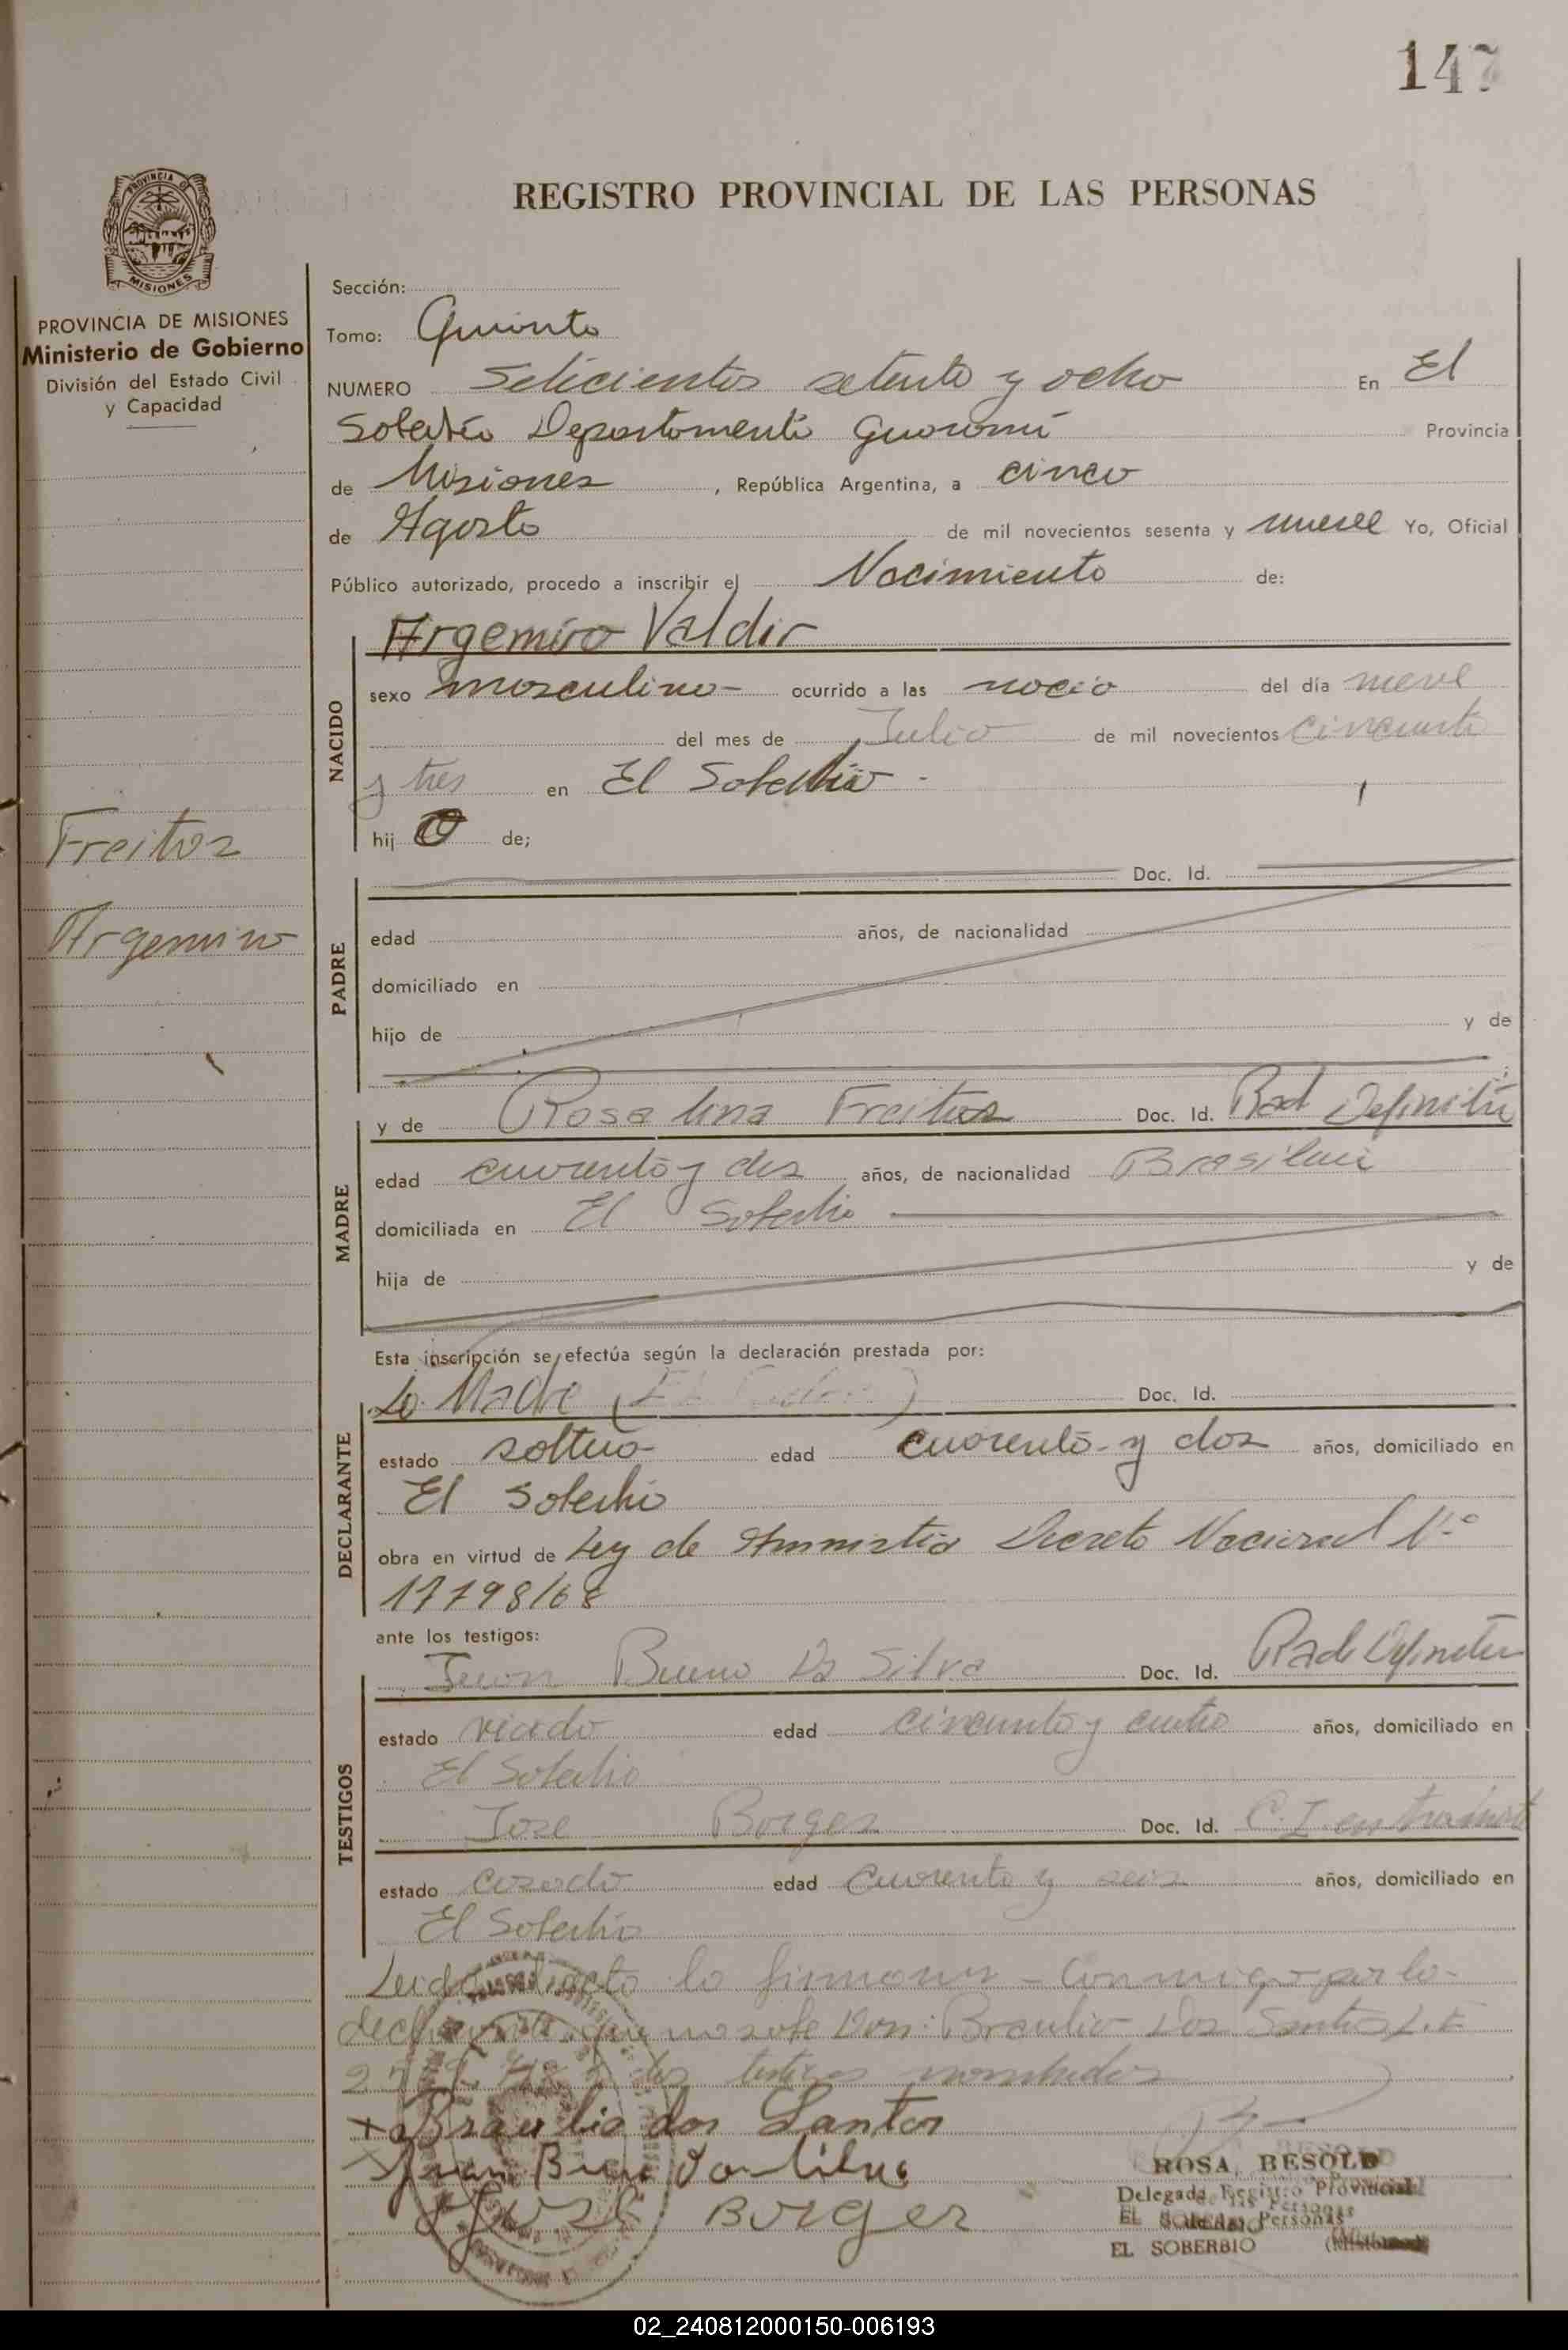 147
PROVINCIA DE
MISIONES
REGISTRO PROVINCIAL DE LAS PERSONAS
PROVINCIA DE MISIONES
Ministerio de Gobierno
División del Estado Civil
y Capacidad
Sección:
Tomo: Quinto
NUMERO Setecientos setenta y ocho En El
Soberbio Departamento Guaraní Provincia
de Misiones, República Argentina, a cinco
de Agosto de mil novecientos sesenta y nueve Yo, Oficial
Público autorizado, procedo a inscribir el Nacimiento de:
NACIDO
Argemiro Valdir
sexo masculino - ocurrido a las nació del día nueve
del mes de Julio de mil novecientos cincuenta
y tres en El Soberbio -
hijo de;
Freitas
Argemiro
PADRE
Doc. Id.
edad años, de nacionalidad
domiciliado en
hijo de y de
MADRE
y de Rosalina Freitas Doc. Id. Rad Definitiv
edad cuarenta y dos años, de nacionalidad Brasilera
domiciliada en El Soberbio
hija de y de
Esta inscripción se efectúa según la declaración prestada por:
DECLARANTE
La Madre Doc. Id.
estado soltera edad cuarenta y dos años, domiciliado en
El Soberbio
obra en virtud de Ley de Amnistia Decreto Nacional Nº
17798/68
ante los testigos:
TESTIGOS
Juan Bueno Da Silva Doc. Id. Rad Definitiv
estado viudo edad cincuenta y cuatro años, domiciliado en
El Soberbio
Jose Borges Doc. Id. C.I. en tramite
estado casado edad cuarenta y seis años, domiciliado en
El Soberbio
Leida el acta la firmaron - Conmigo por la
declarante que no sabe Don: Braulio Dos Santos L.E
los testigos nombrados
Braulio dos Santos
Juan Bueno da Silva
José Borges
ROSA BESOLD
Delegada Registro Provincial
de las Personas
EL SOBERBIO (Misiones)
02_240812000150-006193